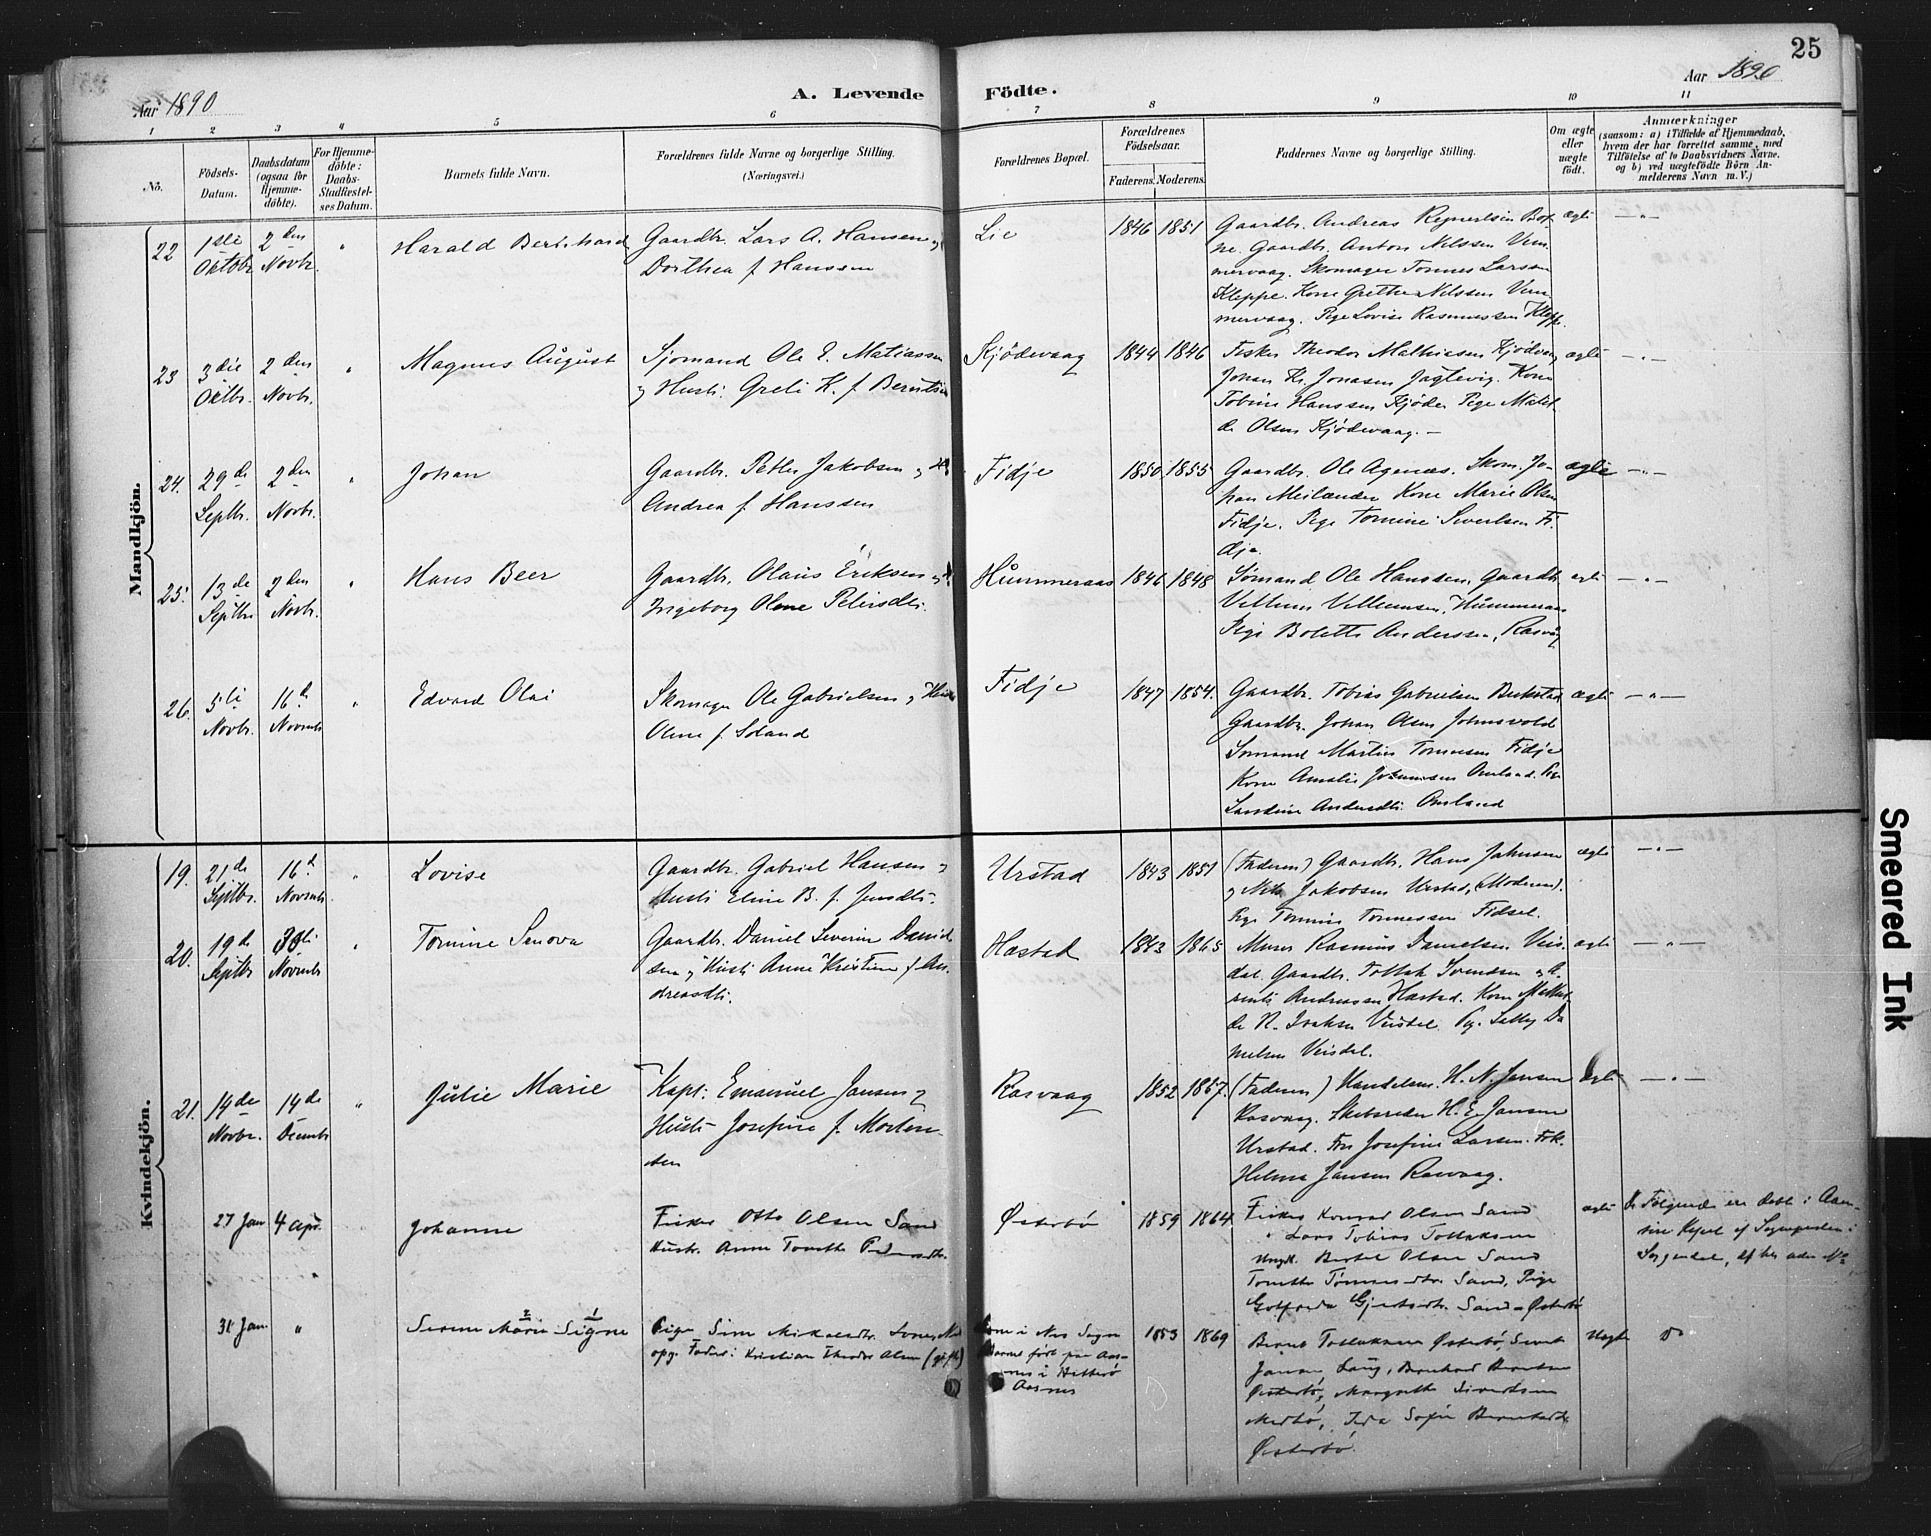 25
Aar 1890
A. Levende Födte.
Aar 1890
1 2 3 4 5 6 7 8 9 10 11
No.
Födsels-Datum.
Daabsdatum (ogsaa for Hjemmedöbte).
For Hjemmedöbte: Daabs-Stadfæstelses Datum.
Barnets fulde Navn.
Forældrenes fulde Navne og borgerlige Stilling.
(Næringsvei.)
Forældrenes Bopæl.
Forældrenes Födselsaar.
Faderens. Moderens.
Faddernes Navne og borgerlige Stilling.
Om ægte eller uægte födt.
Anmærkninger
(saasom: a) i Tilfælde af Hjemmedaab, hvem der har forrettet samme, med Tilföielse af to Daabsvidners Navne, og b) ved uægtefödte Börn Anmelderens Navn m. V.)
Mandkjön.
22 1ste Oktobr. 2den Novbr. " Harald Bernhard
Gaardbr. Lars A. Hansen og
Dorthea f. Hanssen
Lie 1846 1851
Gaardbr. Andreas Reynertsen
Gaardbr. Anton Nilssen Vem-
mervaag. Skomager Tonnes Larsen
Kleppe. Kone Grethe Nilssen Vem-
mervaag. Pige Lovise Rasmussen Kleppe.
ægte — " —
23 3die Oktbr. 2den Novbr. " Magnus August
Sjomand Ole E. Matiassen
og Hustr. Greti K. f. Berntsen
Kjödevaag 1844 1846
Fisker Theodor Mathiesen Kjödevaag
Johan Kr. Jonasen Jagtevig. Kone
Tobine Hanssen Kjöde. Pige Matil-
de Olsen Kjödevaag. —
ægte — " —
24. 29de Septbr. 2den Novbr. " Johan
Gaardbr. Petter Jakobsen og
Andrea f. Hanssen
Fidje 1850 1855
Gaardbr. Ole Agenæs. Skom. Jo-
han Meilænder Kone Marie Olsen
Fidje. Pige Tomine Sivertsen Fi-
dje.
ægte — " —
25. 13de Septbr 2den Novbr. " Hans Beer
Gaardbr. Olaus Eriksen og
Ingeborg Olene Petersdtr.
Hummeraas 1846 1848
Sømand Ole Hanssen, Gaardbr.
Villum Villumsen, Hummeraas
Pige Bolette Anderssen, Rasvåg
ægte — " —
26. 5te Novbr. 16de Novembr " Edvard Olai
Skomager Ole Gabrielsen og
Olene f. Soland
Fidje 1847 1854.
Gaardbr. Tobias Gabrielsen
Gaardbr. Johan Olsen
Sømand Martin Tonnesen Fidje
Kone Amalie Johannesen Omland. Pige
Andersdtr. Omland
ægte — " —
Kvindekjön.
19. 21de Septbr. 16de Novembr " Lovise
Gaardbr. Gabriel Hansen og
Hustr. Eline B. f. Jensdtr.
Urstad 1843 1851
(Faderen) Gaardbr. Hans Jahnsen
og Nils Jakobsen Urstad, (Moderen).
Pige Tomine Tonnessen Fidsel.
ægte — " —
20. 19de Septbr 30te Novembr " Tomine Senova
Gaardbr. Daniel Severin Daniel-
sen og Hustr. Anne Kristine f. An-
dreasdtr.
Hæstad 1843 1865
Murer Rasmus Danielsen Veis-
dal. Gaardbr. Tollak Svendsen og
Andreasen Hæstad. Kone Mathil-
de R. Isaksen Veisdal. Pg. Da-
nielsen Veisdal.
ægte — " —
21. 14de Novbr. 14de Decembr " Julie Marie
Kapt. Emanuel Jansen og
Hustr. Josefine f. Morten-
sen
Rasvaag 1852 1857.
(Faderen) Handelsm. H. N. Jansen
Rasvaag. Skibsreder H. E. Jansen
Urstad. Fru Josefine Larsen. Frk.
Helene Jansen Rasvaag.
ægte — " —
27 Jan 4 apr. Johanne
Fisker Otto Olsen Sand
Hustr. Anne Tomette Pedersdtr.
Østerbö 1859 1864
Fisker Konrad Olsen Sand
" Lars Tobias Tollaksen
Ungk. Bertel Olsen Sand
Tomette Tønnesdtr. Sand, Pige
Gotfreda Gjertsdtr. Sand - Østerbö
ægte
Følgende er døbt i Aan-
Kapel af Sognepresten i
Sogndal,
31 Jan " Serine Marie Signe
2 1
Pige Sine Mikalsdtr.
opg. Fader: Kristian Theodor Olsen (gift)
i Nes Sogn
Barnet født paa Aas-
nes i Hitterö
Aasnes
1853 1869
Bernt Tollaksen Østerbö,
Jansen Laug, Bernhard Berntsen
Østerbö, Margrethe Sivertsen
Ida Sofie
Østerbö.
Uægte Do
Smeared Ink